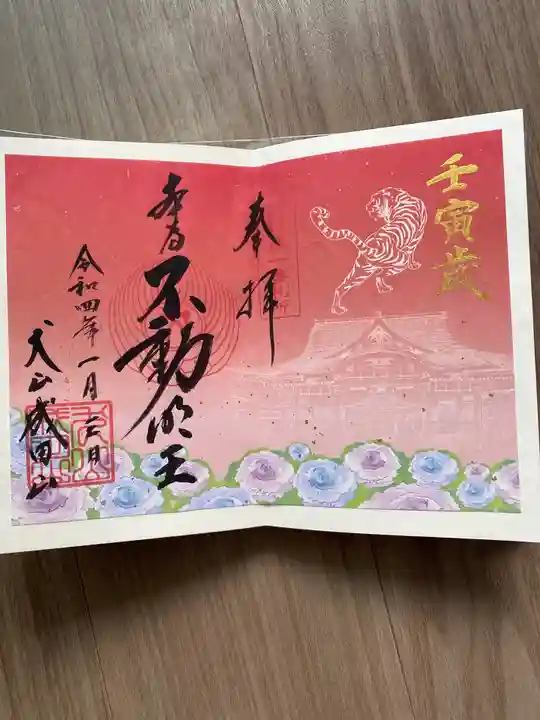 壬寅歳
奉拝
本尊
不動明王
令和四年一月三日
犬山成田山